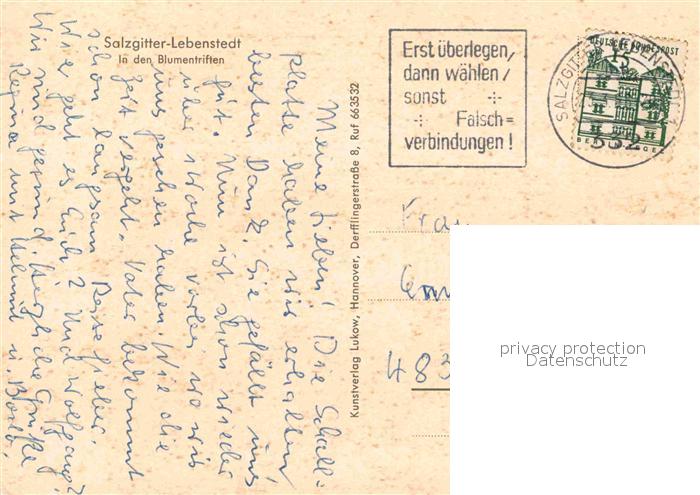 Salzgitter-Lebenstedt
In den Blumentriften
Erst überlegen,
dann wählen,
sonst
Falsch=
verbindungen!
DEUTSCHE BUNDESPOST
15
SALZGITTER-LEBENSTEDT 1
332
Kunstverlag Lukow, Hannover, Derfflingerstraße 8, Ruf 663532
Meine Lieben! Die Schall-
platte haben wir erhalten,
besten Dank. Sie gefällt uns
gut. Nun ist schon wieder
über 1 Woche vorbei, wo wir
uns gesehen haben. Wie die
Zeit vergeht. Vater bekommt
schon langsam Reisefieber.
Wie geht es Euch? Und Wolfgang?
Wir sind gesund. Herzliche Grüße
Regina mit Helmut u. Bodo.
Frau
483
privacy protection
Datenschutz